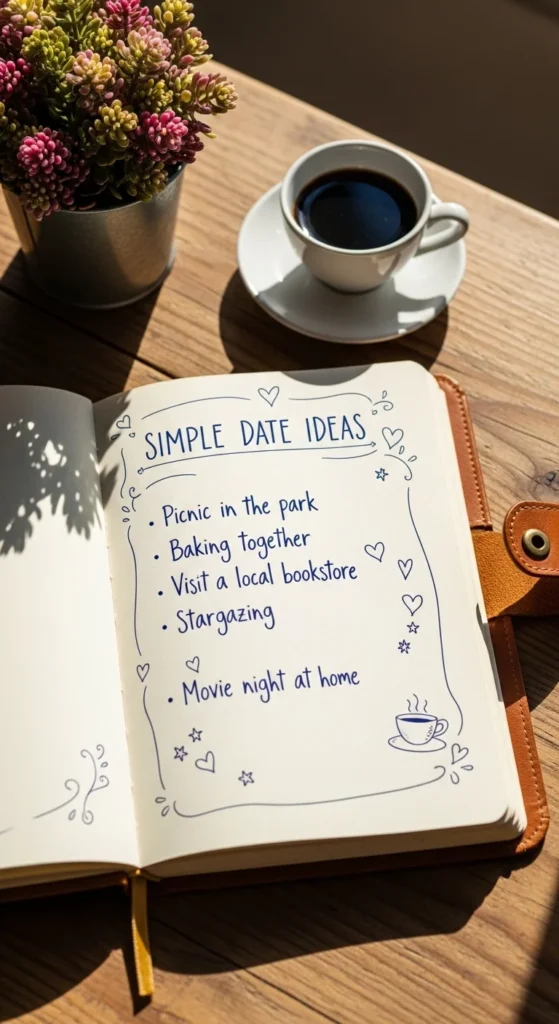 SIMPLE DATE IDEAS
• Picnic in the park
• Baking together
• Visit a local bookstore
• Stargazing
• Movie night at home